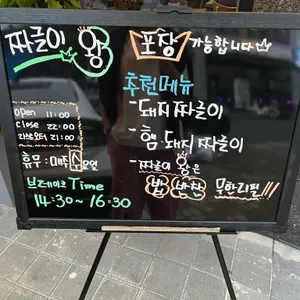 짜글이 왕
포장 가능합니다
추천메뉴
- 돼지 짜글이
- 햄·돼지 짜글이
- 짜글이 왕은
밥 반찬 무한리필!!!
Open 11:00
Close 22:00
라스트오더 21:00
휴무 : 매주 수요일
브레이크 Time
14:30 ~ 16:30